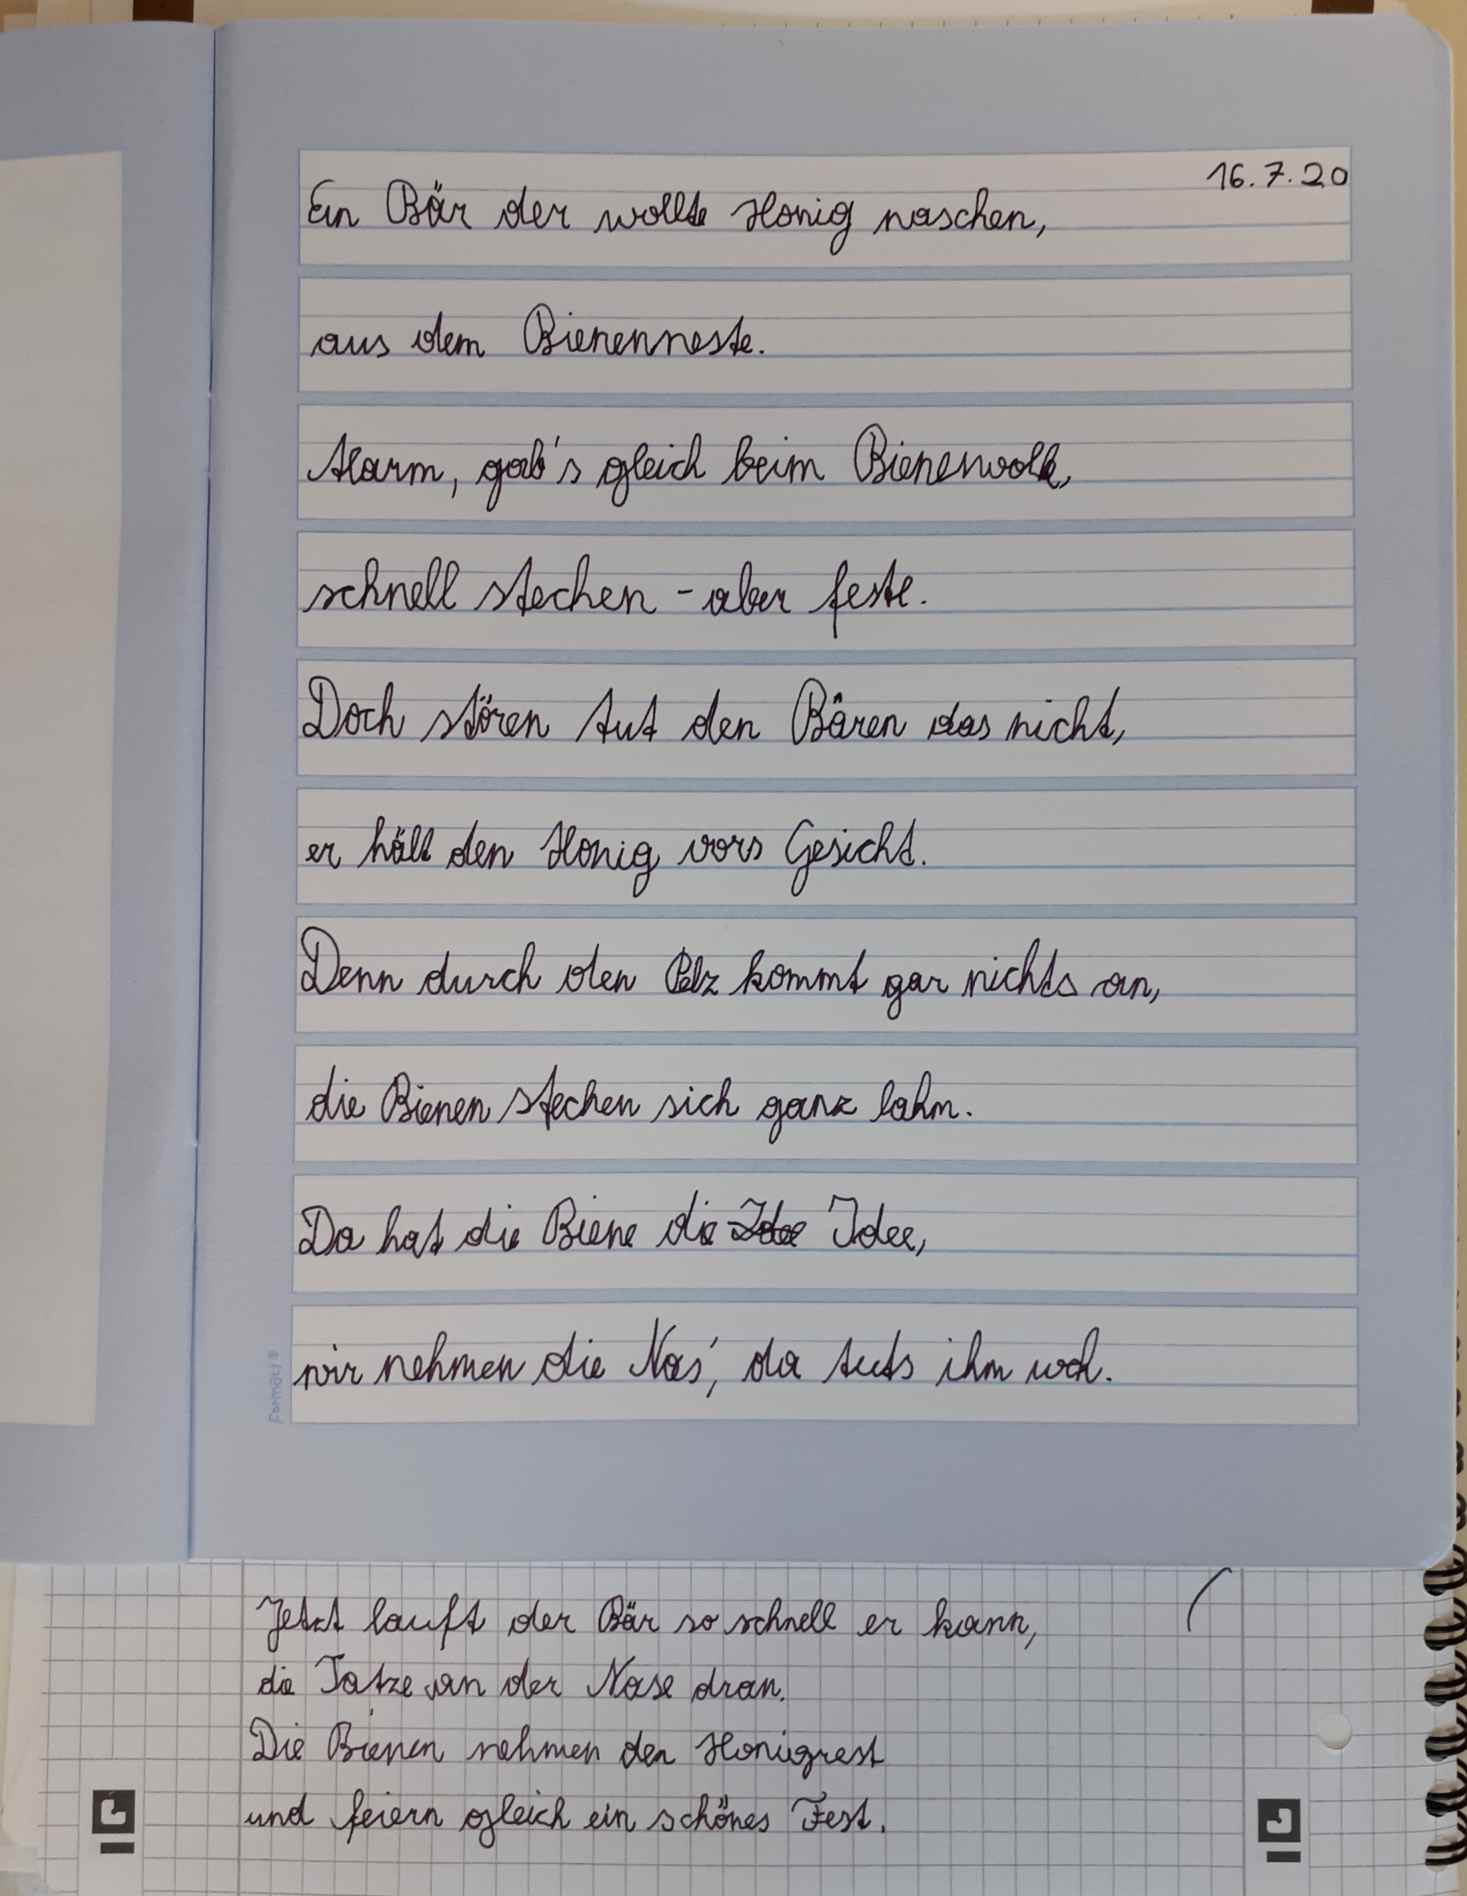 16.7.20
Ein Bär der wollte Honig naschen,
aus dem Bienenneste.
Alarm, gab's gleich beim Bienenvolk,
schnell stechen - aber feste.
Doch stören tut den Bären das nicht,
er hält den Honig vors Gesicht.
Denn durch den Pelz kommt gar nichts an,
die Bienen stechen sich ganz lahm.
Da hat die Biene die Idee Idee,
wir nehmen die Nas', da tuts ihm weh.
formati
Jetzt lauft der Bär so schnell er kann,
die Tatze an der Nase dran.
Die Bienen nehmen den Honigrest
und feiern gleich ein schönes Fest.